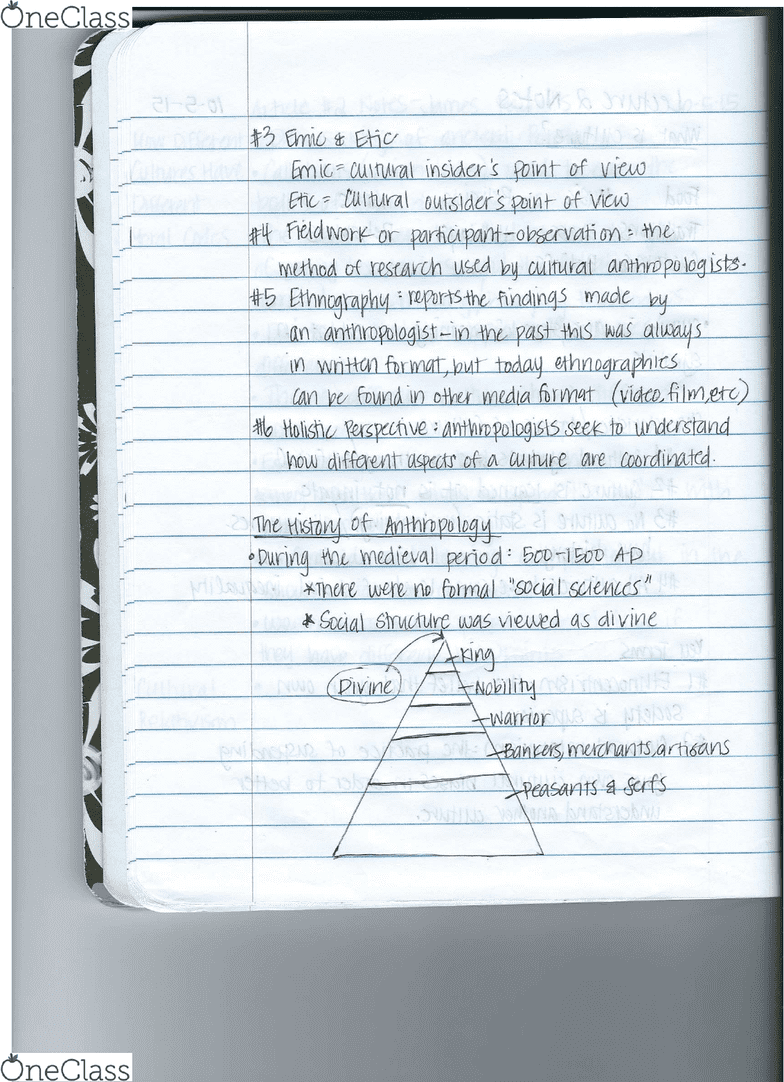 OneClass
#3 Emic & Etic
Emic = cultural insider's point of view
Etic = Cultural outsider's point of view
#4 Fieldwork or participant-observation : the
method of research used by cultural anthropologists.
#5 Ethnography : reports the findings made by
an anthropologist - in the past this was always
in written format, but today ethnographies
can be found in other media format (video, film, etc)
#6 Holistic Perspective : anthropologists seek to understand
how different aspects of a culture are coordinated.
The History of Anthropology
• During the medieval period : 500-1500 AD
* There were no formal "social sciences"
* Social structure was viewed as divine
King
Divine
Nobility
Warrior
Bankers, merchants, artisans
Peasants & Serfs
OneClass